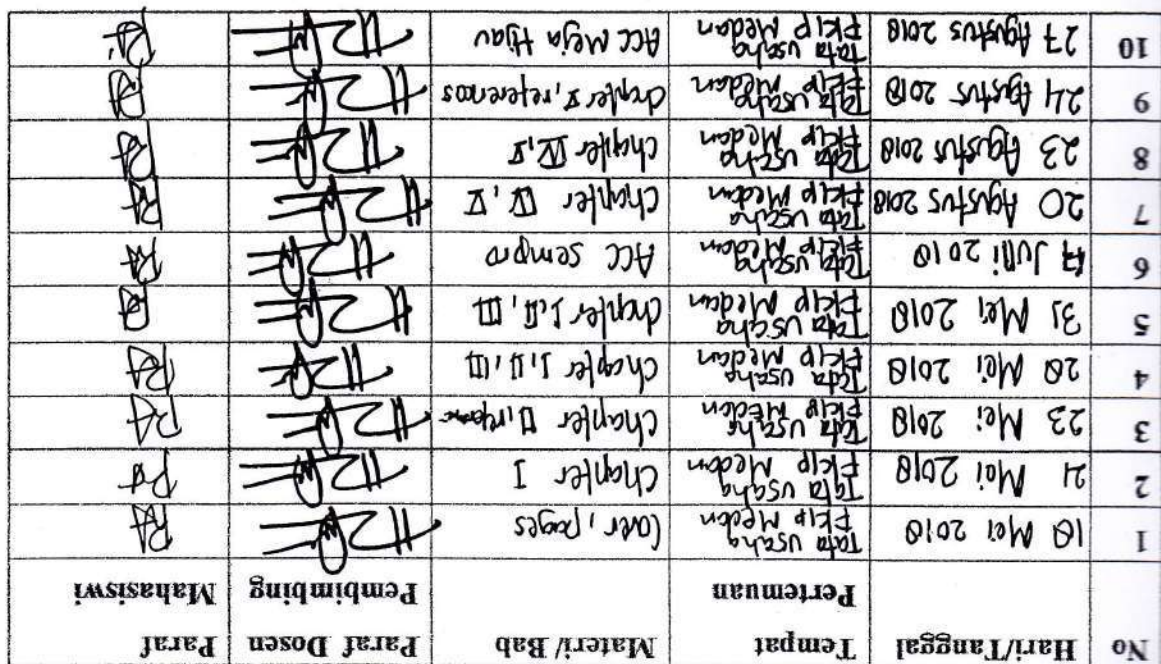 No Hari/Tanggal Tempat Pertemuan Materi/ Bab Paraf Dosen Pembimbing Paraf Mahasiswi
1 18 Mei 2018 Tata usaha Fkip Medan Cover, pages
2 21 Mei 2018 Tata usaha Fkip Medan Chapter I
3 23 Mei 2018 Tata usaha Fkip Medan Chapter II,
4 28 Mei 2018 Tata usaha Fkip Medan Chapter I, II, III
5 31 Mei 2018 Tata usaha Fkip Medan Chapter I, II, III
6 17 Juli 2018 Tata usaha Fkip Medan ACC sempro
7 20 Agustus 2018 Tata usaha Fkip Medan Chapter IV, V
8 23 Agustus 2018 Tata usaha Fkip Medan Chapter IV, V
9 24 Agustus 2018 Tata usaha Fkip Medan Chapter V, references
10 27 Agustus 2018 Tata usaha Fkip Medan ACC Meja Hijau